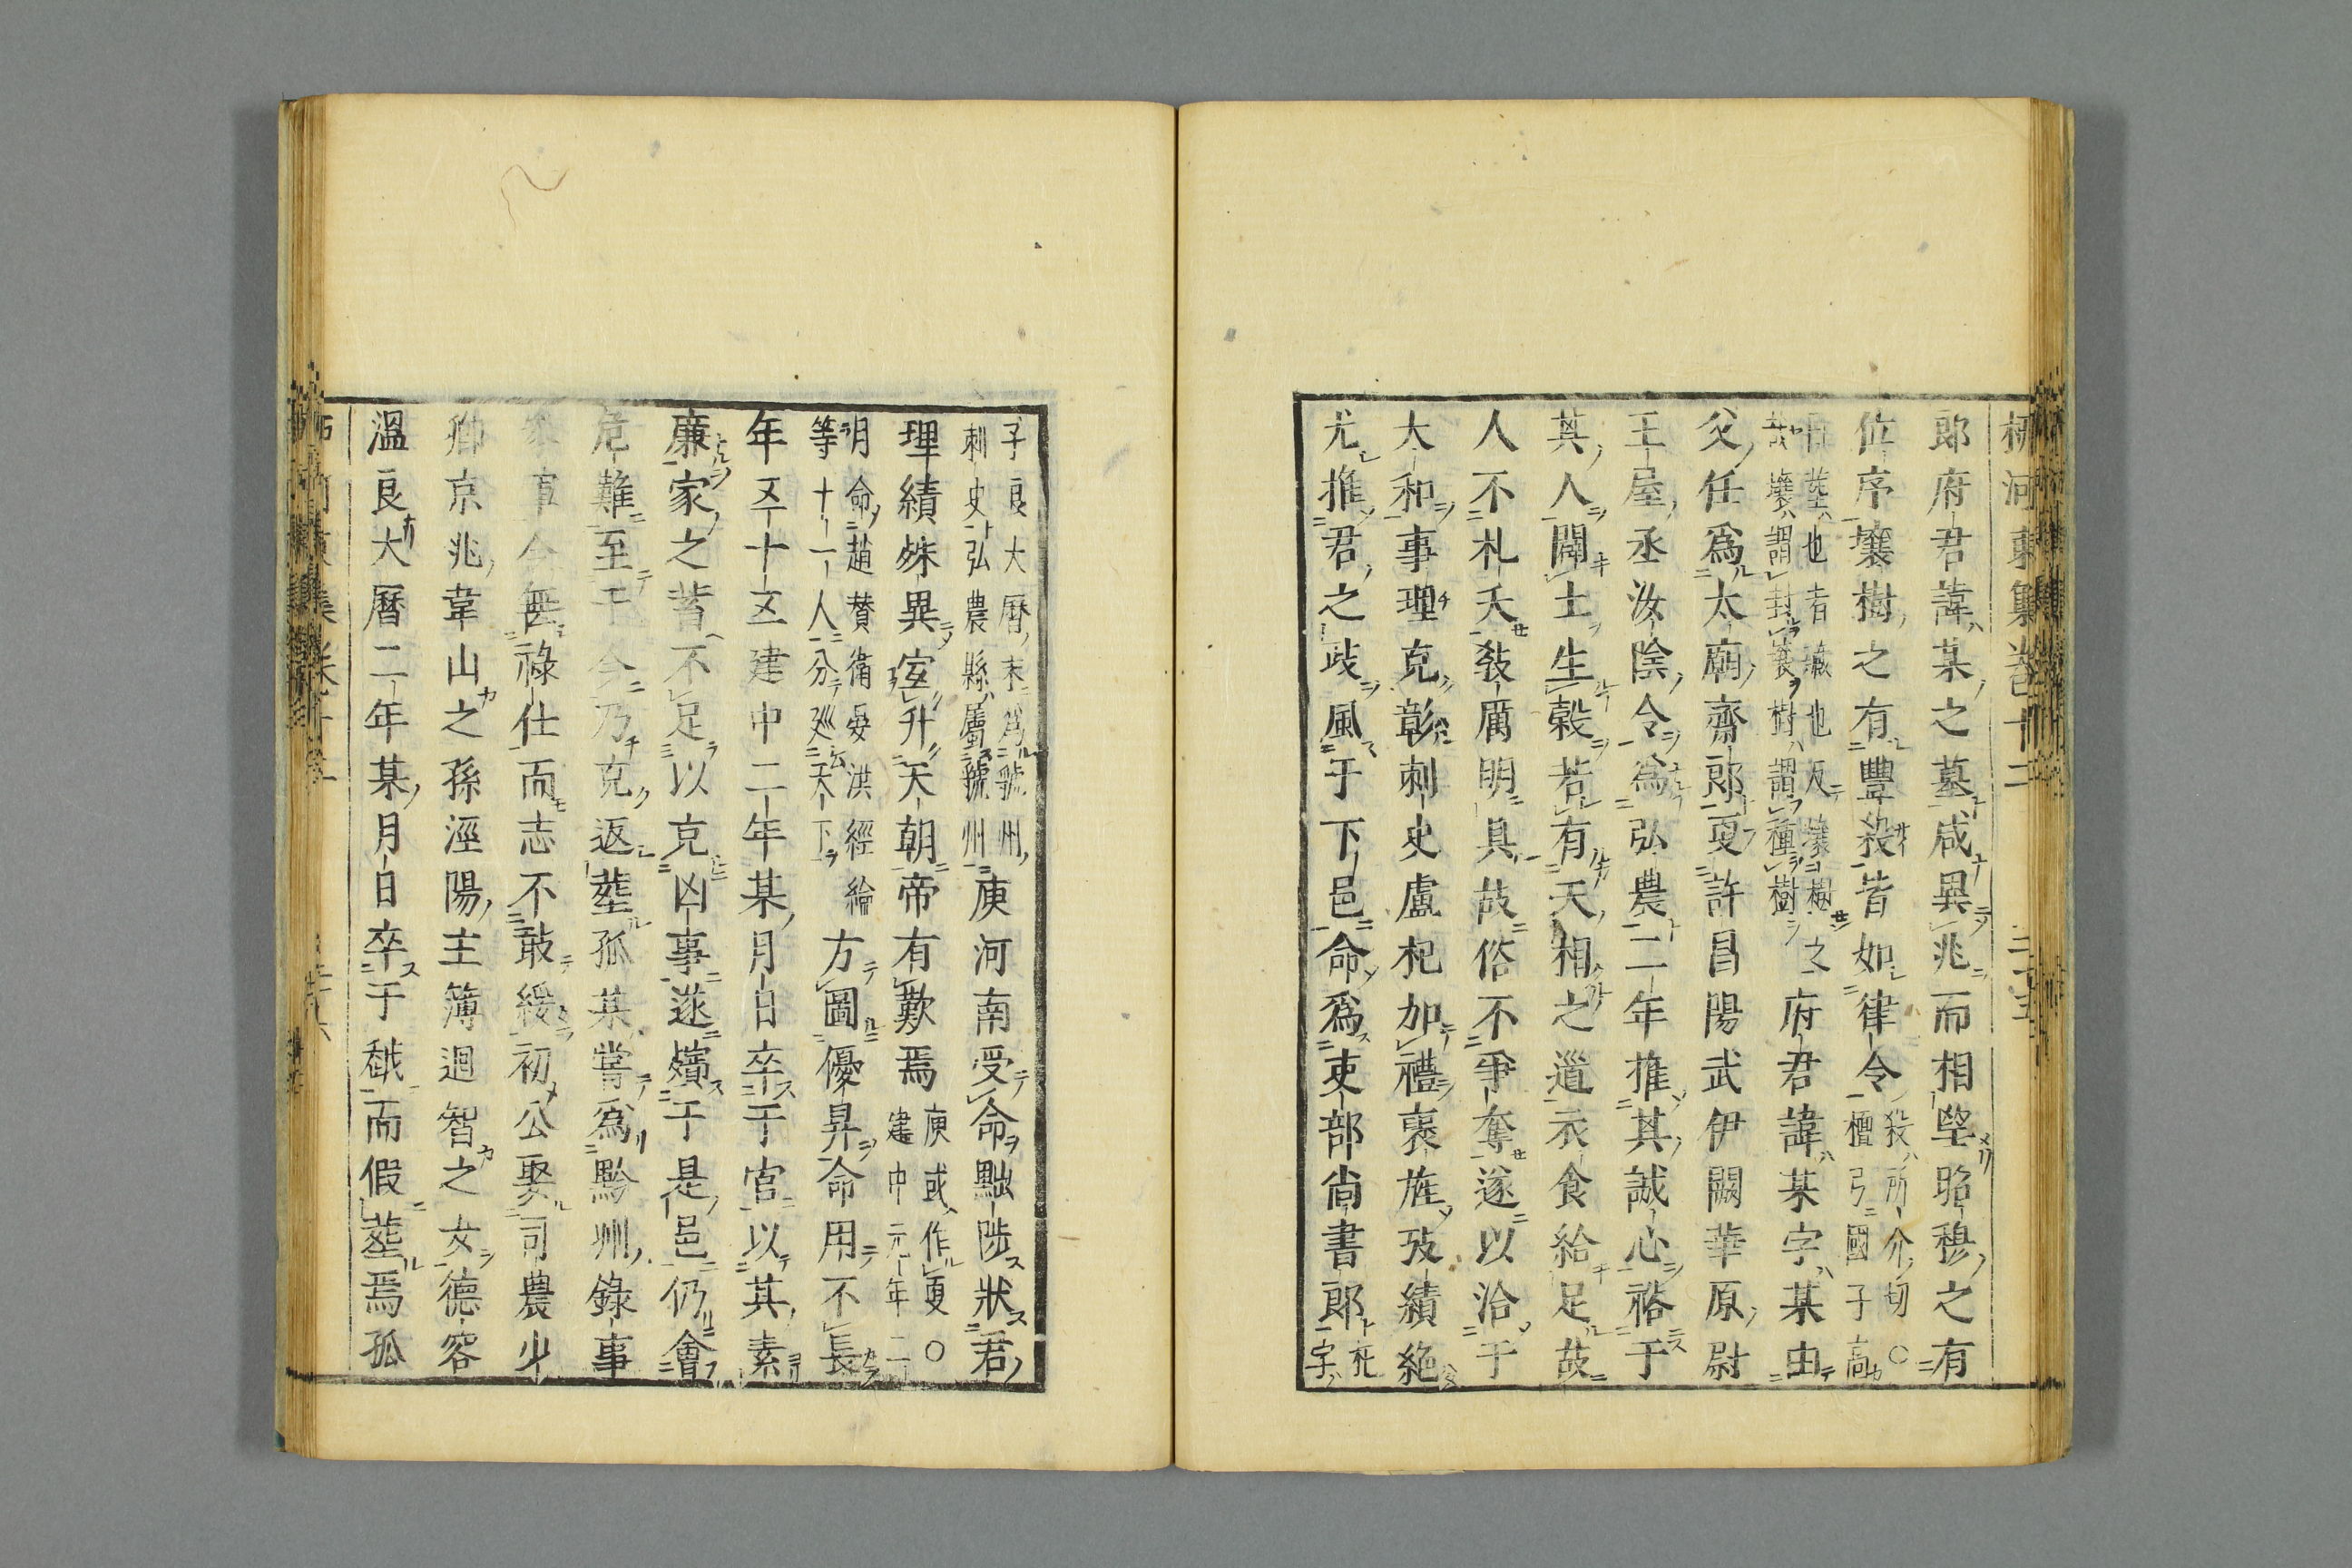 柳河東集卷十二
郎府君諱某之墓咸異兆而相望昭穆之有
位序壤樹之有豐殺皆如律令殺所介切○檀弓國子高
曰葬也者藏也反壤樹之哉壤謂封壤樹謂種樹府君諱某字某由
父任爲太廟齋郎更許昌陽武伊闕華原尉
王屋丞汝陰令爲弘農二年推其誠心裕于
其人闢土生穀若有天相之道衣食給足故
人不札夭敎厲明具故俗不爭奪遂以洽于
大和事理克彰刺史盧杞加禮褒旌攷績絶
尤推君之政風于下邑命爲吏部尙書郎杞字
子良大曆末爲虢州刺史弘農縣屬虢州庾河南受命黜陟狀君
理績姝異寔升天朝帝有歎焉庾或作更○建中元年二
月命趙贊衞晏洪經綸等十一人分廵天下方圖優昇命用不長
年五十五建中二年某月日卒于官以其素
廉家之蓄不足以克凶事遂殯于是邑仍會
危難至于今乃克返葬孤某嘗爲黔州錄事
參軍今無祿仕而志不敢緩初公娶司農少
卿京兆韋山之孫涇陽主簿迴智之女德容
溫良大曆二年某月日卒于虢而假葬焉孤